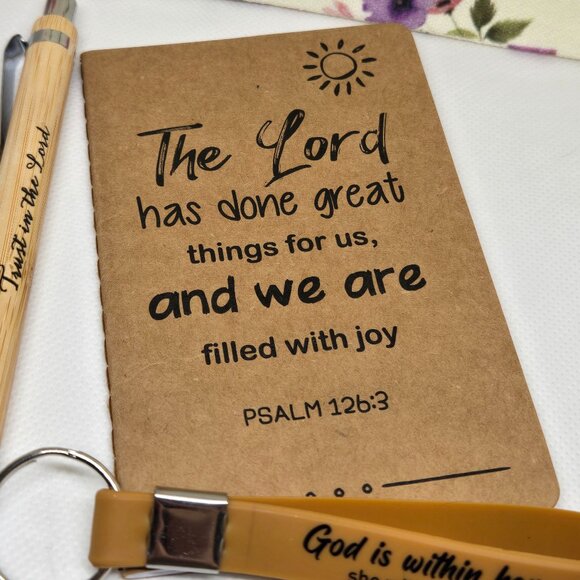 Trust in the Lord
The Lord
has done great
things for us,
and we are
filled with joy
PSALM 126:3
God is within